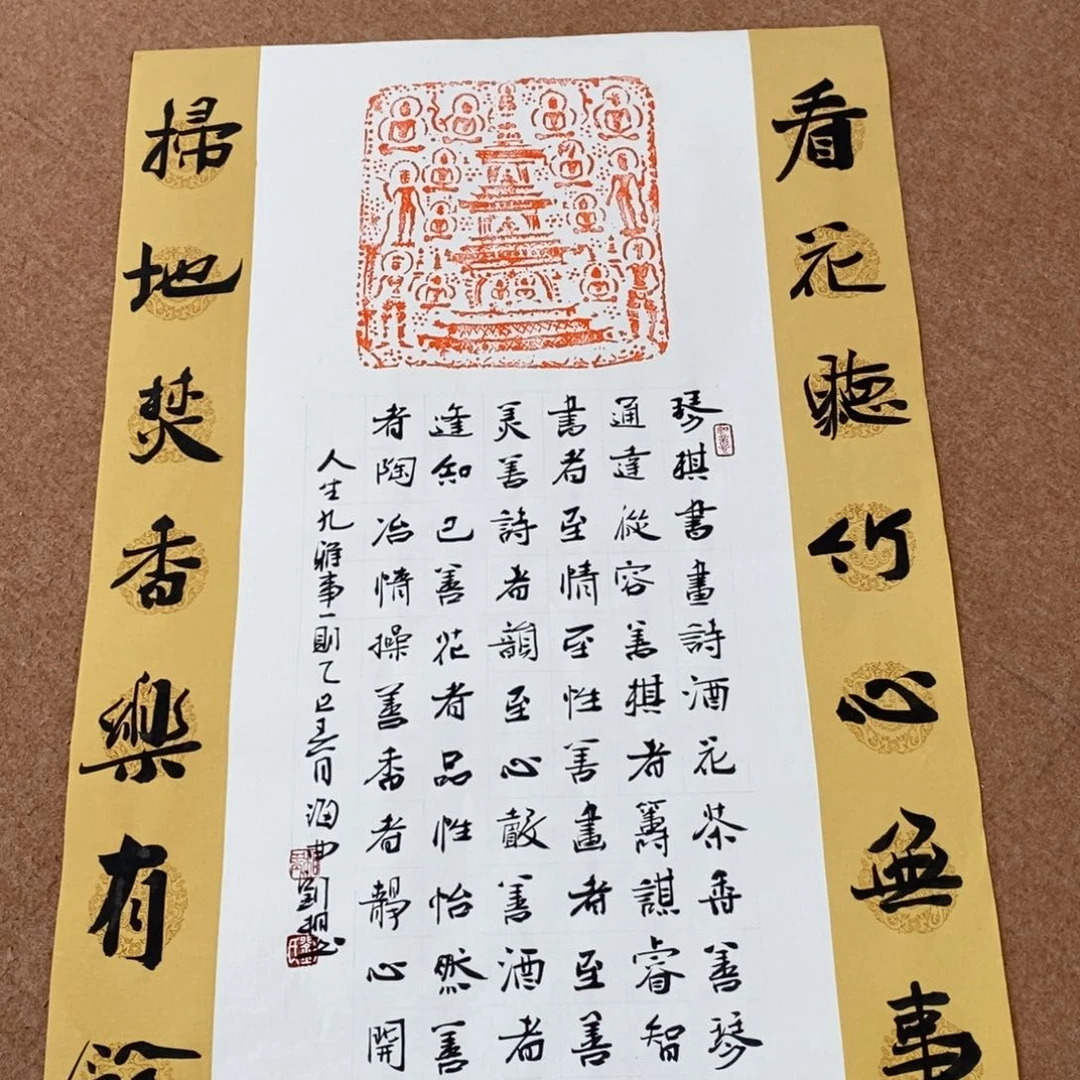 看花聽竹心無事
琴棋書畫詩酒花茶香善琴
通達從容善棋者籌謀睿智
書者至情至性善畫者至善
美善詩者韻至心聲善酒者
逢知己善花者品性怡然善
者陶冶情操善香者靜心開
人生九雅事一則乙巳月劉書
掃地焚香樂有